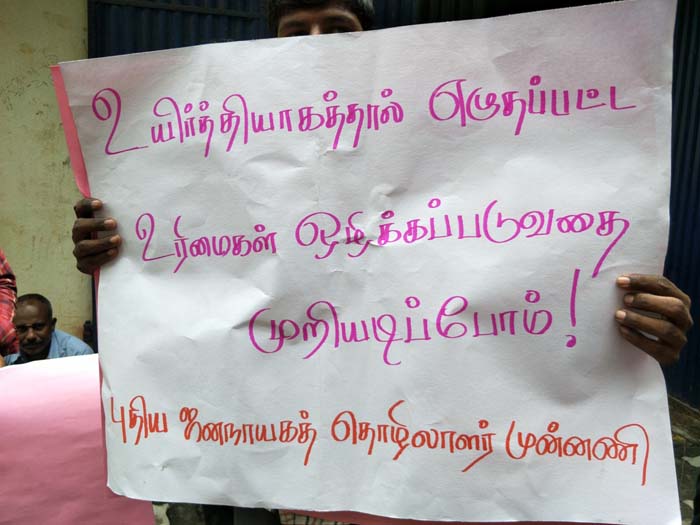 உயிர்த்தியாகத்தால் எழுதப்பட்ட
உரிமைகள் ஒழிக்கப்படுவதை
முறியடிப்போம்!
புதிய ஜனநாயகத் தொழிலாளர் முன்னணி